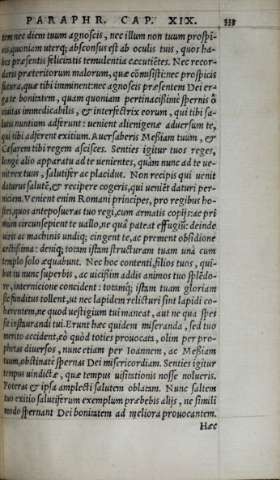 PARAPHR. CAP. XIX. 338
tem nec diem tuum agnoscis, nec illum non tuum prospi-
cis, quoniam uterq; absconsus est ab oculis tuis, quos ha-
bes præsentis felicitatis temulentia cæcutiētes. Nec recor-
daris præteritorum malorum, quæ cōmisisti: nec prospicis
futura, quæ tibi imminent: nec agnoscis præsentem Dei er-
ga te bonitatem, quam quoniam pertinacissime spernis ô
ciuitas immedicabilis, & interfectrix eorum, qui tibi sa-
lutis nuntium adferunt: uenient alienigenæ aduersum te,
qui tibi adferent exitium. Auersaberis Messiam tuum, &
Cæsarem tibi regem asciscес. Senties igitur tuos reges,
longe alio apparatu ad te uenientes, quàm nunc ad te ue-
nit rex tuus, salutifer ac placidus. Non recipis qui uenit
daturus salutē, & recipere cogeris, qui ueniēt daturi per-
niciem. Venient enim Romani principes, pro regibus ho-
stes, quos anteposueras tuo regi, cum armatis copijs: ac pri
mùm circunsepient te uallo, ne quà pateat effugiū: deinde
uiris ac machinis undiq; cingent te, ac prement obsidione
arctissima: deniq; totam istam structuram tuam unà cum
templo solo æquabunt. Nec hoc contenti, filios tuos, qui-
bus tu nunc superbis, ac uiciβim addis animos tuo splēdo-
re, internicione concident: totamq; istam tuam gloriam
sic funditus tollent, ut nec lapidem relicturi sint lapidi co-
hærentem, ne quod uestigium tui maneat, aut ne qua spes
sit instaurandi tui. Erunt hæc quidem miseranda, sed tuo
merito accident, eò quòd toties prouocata, olim per pro-
phetas diuersos, nunc etiam per Ioannem, ac Messiam
tuum, obstinate spernas Dei misericordiam. Senties igitur
tempus uindictæ, quæ tempus uisitationis nosse nolueris.
Poteras & ipsa amplecti salutem oblatam. Nunc saltem
tuo exitio salutiferum exemplum præbebis alijs, ne simili
modo spernant Dei bonitatem ad meliora prouocantem.
Hæc